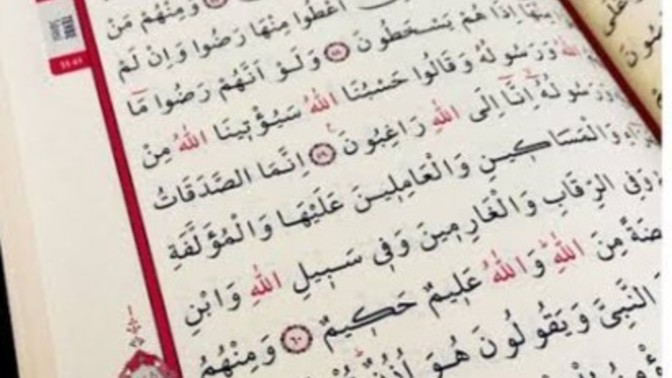 وَمِنْهُمْ مَنْ
اَعْطُوا مِنْهَا رَضُوا وَاِنْ لَمْ
مِنْهَٓا اِذَا هُمْ يَسْخَطُونَ ﴿٥٨﴾ وَلَوْ اَنَّهُمْ رَضُوا مَٓا
اللّٰهُ وَرَسُولُهُ وَقَالُوا حَسْبُنَا اللّٰهُ سَيُؤْتِينَا اللّٰهُ مِنْ
وَرَسُولُهُٓ اِنَّٓا اِلَى اللّٰهِ رَاغِبُونَ ﴿٥٩﴾ اِنَّمَا الصَّدَقَاتُ
وَالْمَسَاكِينِ وَالْعَامِلِينَ عَلَيْهَا وَالْمُؤَلَّفَةِ
وَفِي الرِّقَابِ وَالْغَارِمِينَ وَفِي سَبِيلِ اللّٰهِ وَابْنِ
مِنَ اللّٰهِ وَاللّٰهُ عَلِيمٌ حَكِيمٌ ﴿٦٠﴾ وَمِنْهُمُ
النَّبِيَّ وَيَقُولُونَ هُوَ اُذُنٌ